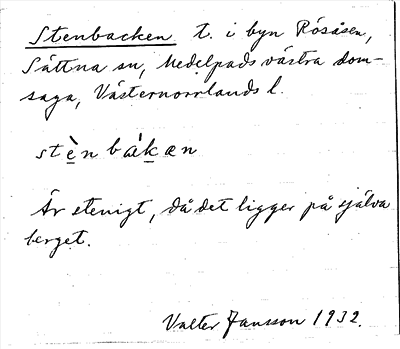 Stenbacken t. i byn Rösåsen,
Sättna sn, Medelpads västra dom-
saga, Västernorrlands l.
stènbàkæn
Är stenigt, då det ligger på själva
berget.
Valter Jansson 1932.